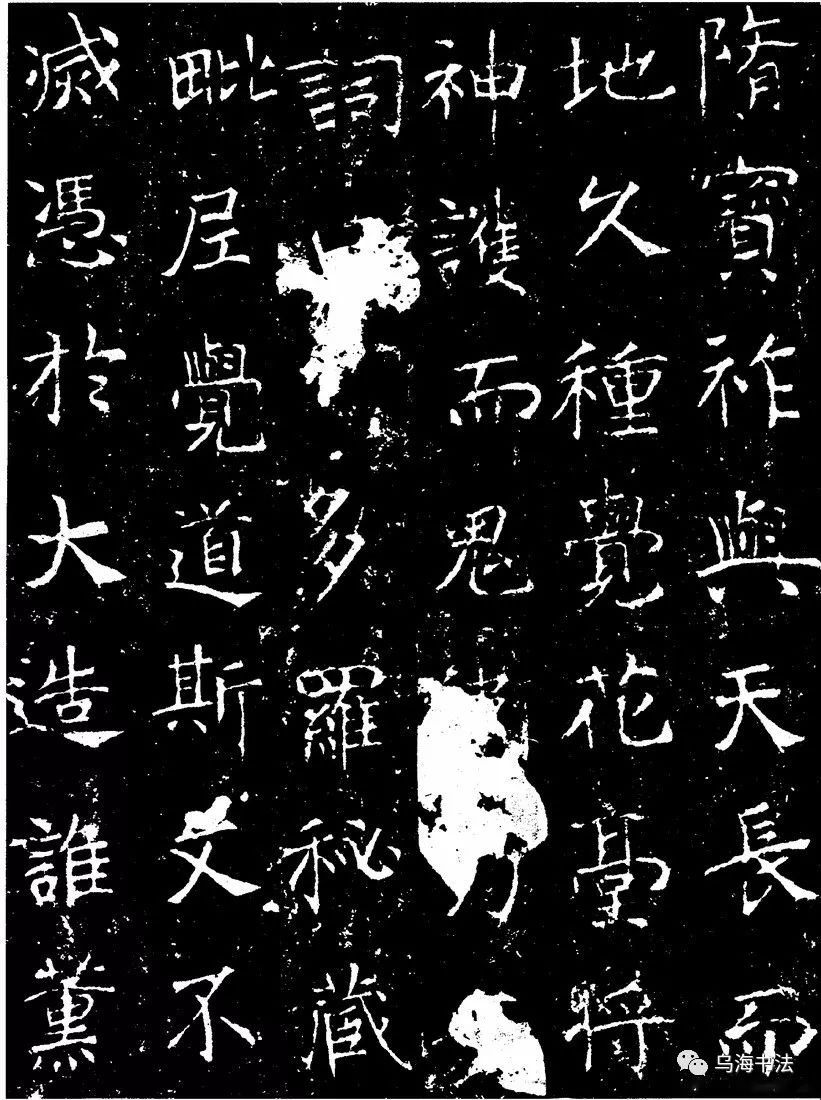 隋寶祚與天長而
地久種覺花臺將
神護而鬼
詞多羅秘藏
毗尼覺道斯文不
滅憑於大造誰薰
乌海书法